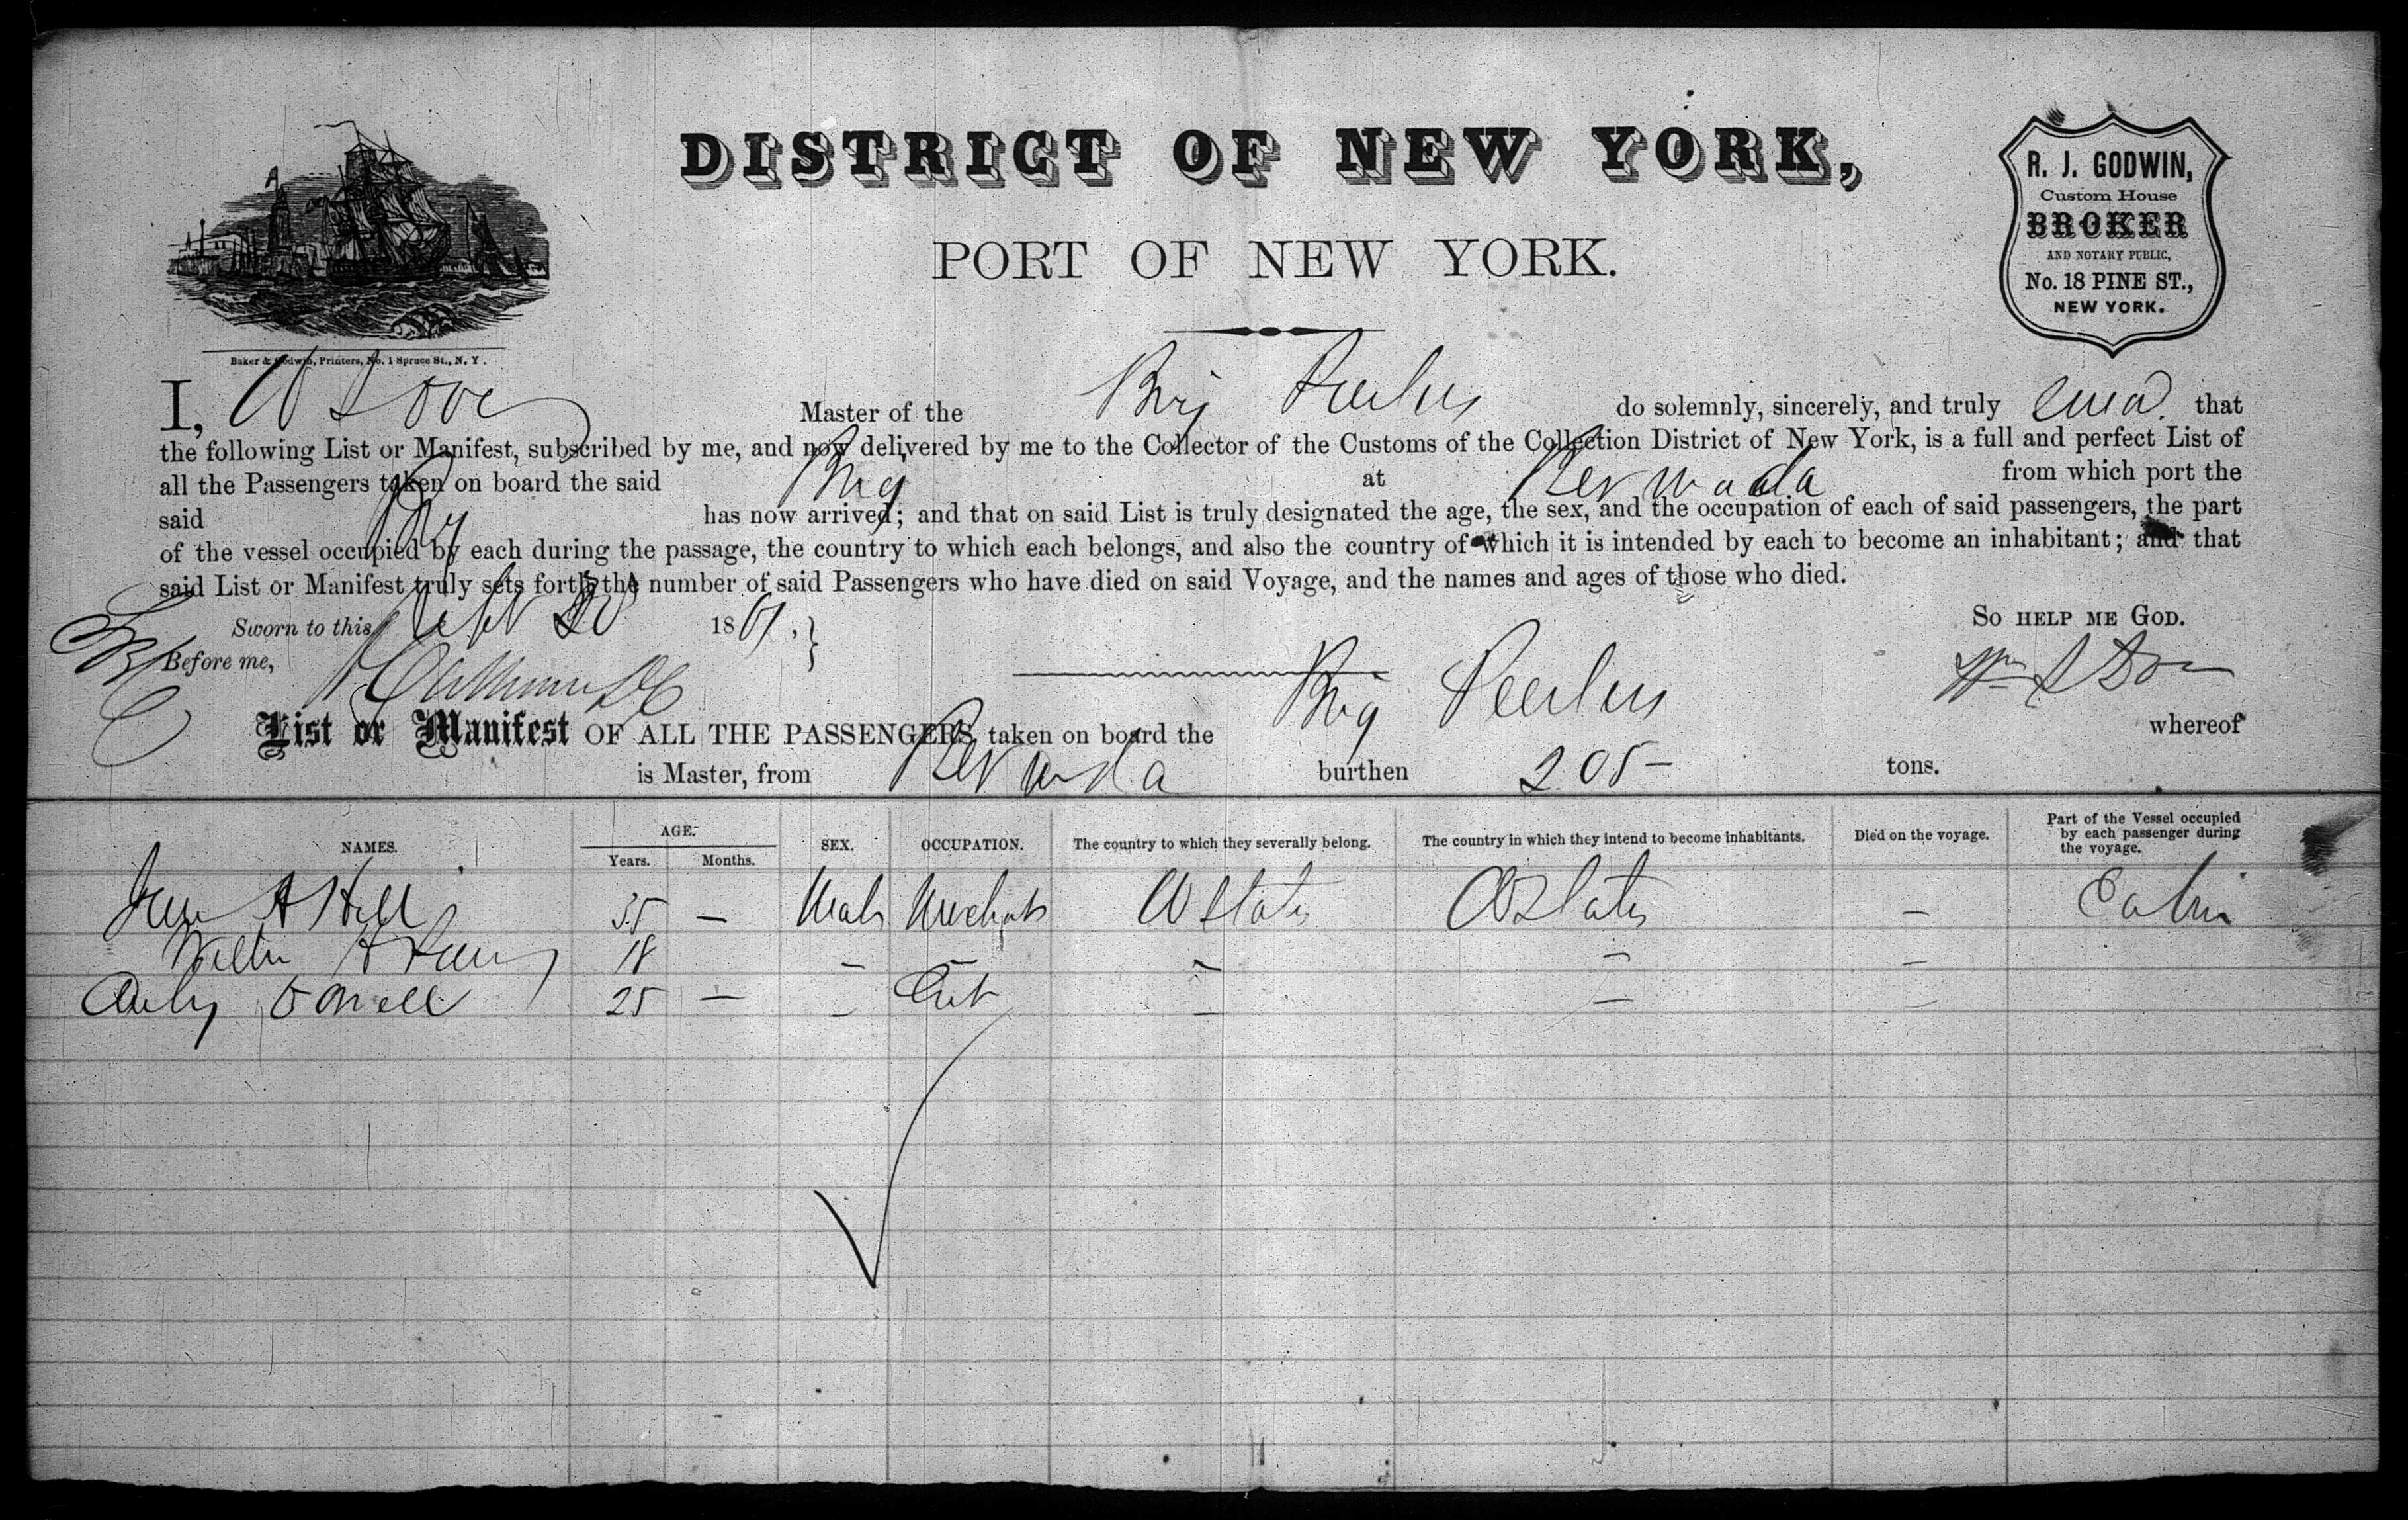 DISTRICT OF NEW YORK,
PORT OF NEW YORK.
R. J. GODWIN,
Custom House
BROKER
AND NOTARY PUBLIC,
No. 18 PINE ST.,
NEW YORK.
Baker & Godwin, Printers, No. 1 Spruce St., N. Y.
I, Master of the Brig Peerless do solemnly, sincerely, and truly that
the following List or Manifest, subscribed by me, and now delivered by me to the Collector of the Customs of the Collection District of New York, is a full and perfect List of
all the Passengers taken on board the said Brig at Bermuda from which port the
said Brig has now arrived; and that on said List is truly designated the age, the sex, and the occupation of each of said passengers, the part
of the vessel occupied by each during the passage, the country to which each belongs, and also the country of which it is intended by each to become an inhabitant; and that
said List or Manifest truly sets forth the number of said Passengers who have died on said Voyage, and the names and ages of those who died.
Sworn to this 1861, } So HELP ME GOD.
Before me,
List or Manifest OF ALL THE PASSENGERS taken on board the Brig Peerless whereof
is Master, from Bermuda burthen 205 tons.
NAMES. AGE. Years. Months. SEX. OCCUPATION. The country to which they severally belong. The country in which they intend to become inhabitants. Died on the voyage. Part of the Vessel occupied by each passenger during the voyage.
A Hill 35 — Male Merchant U States U States — Cabin
18 — — — — —
25 — — — — —